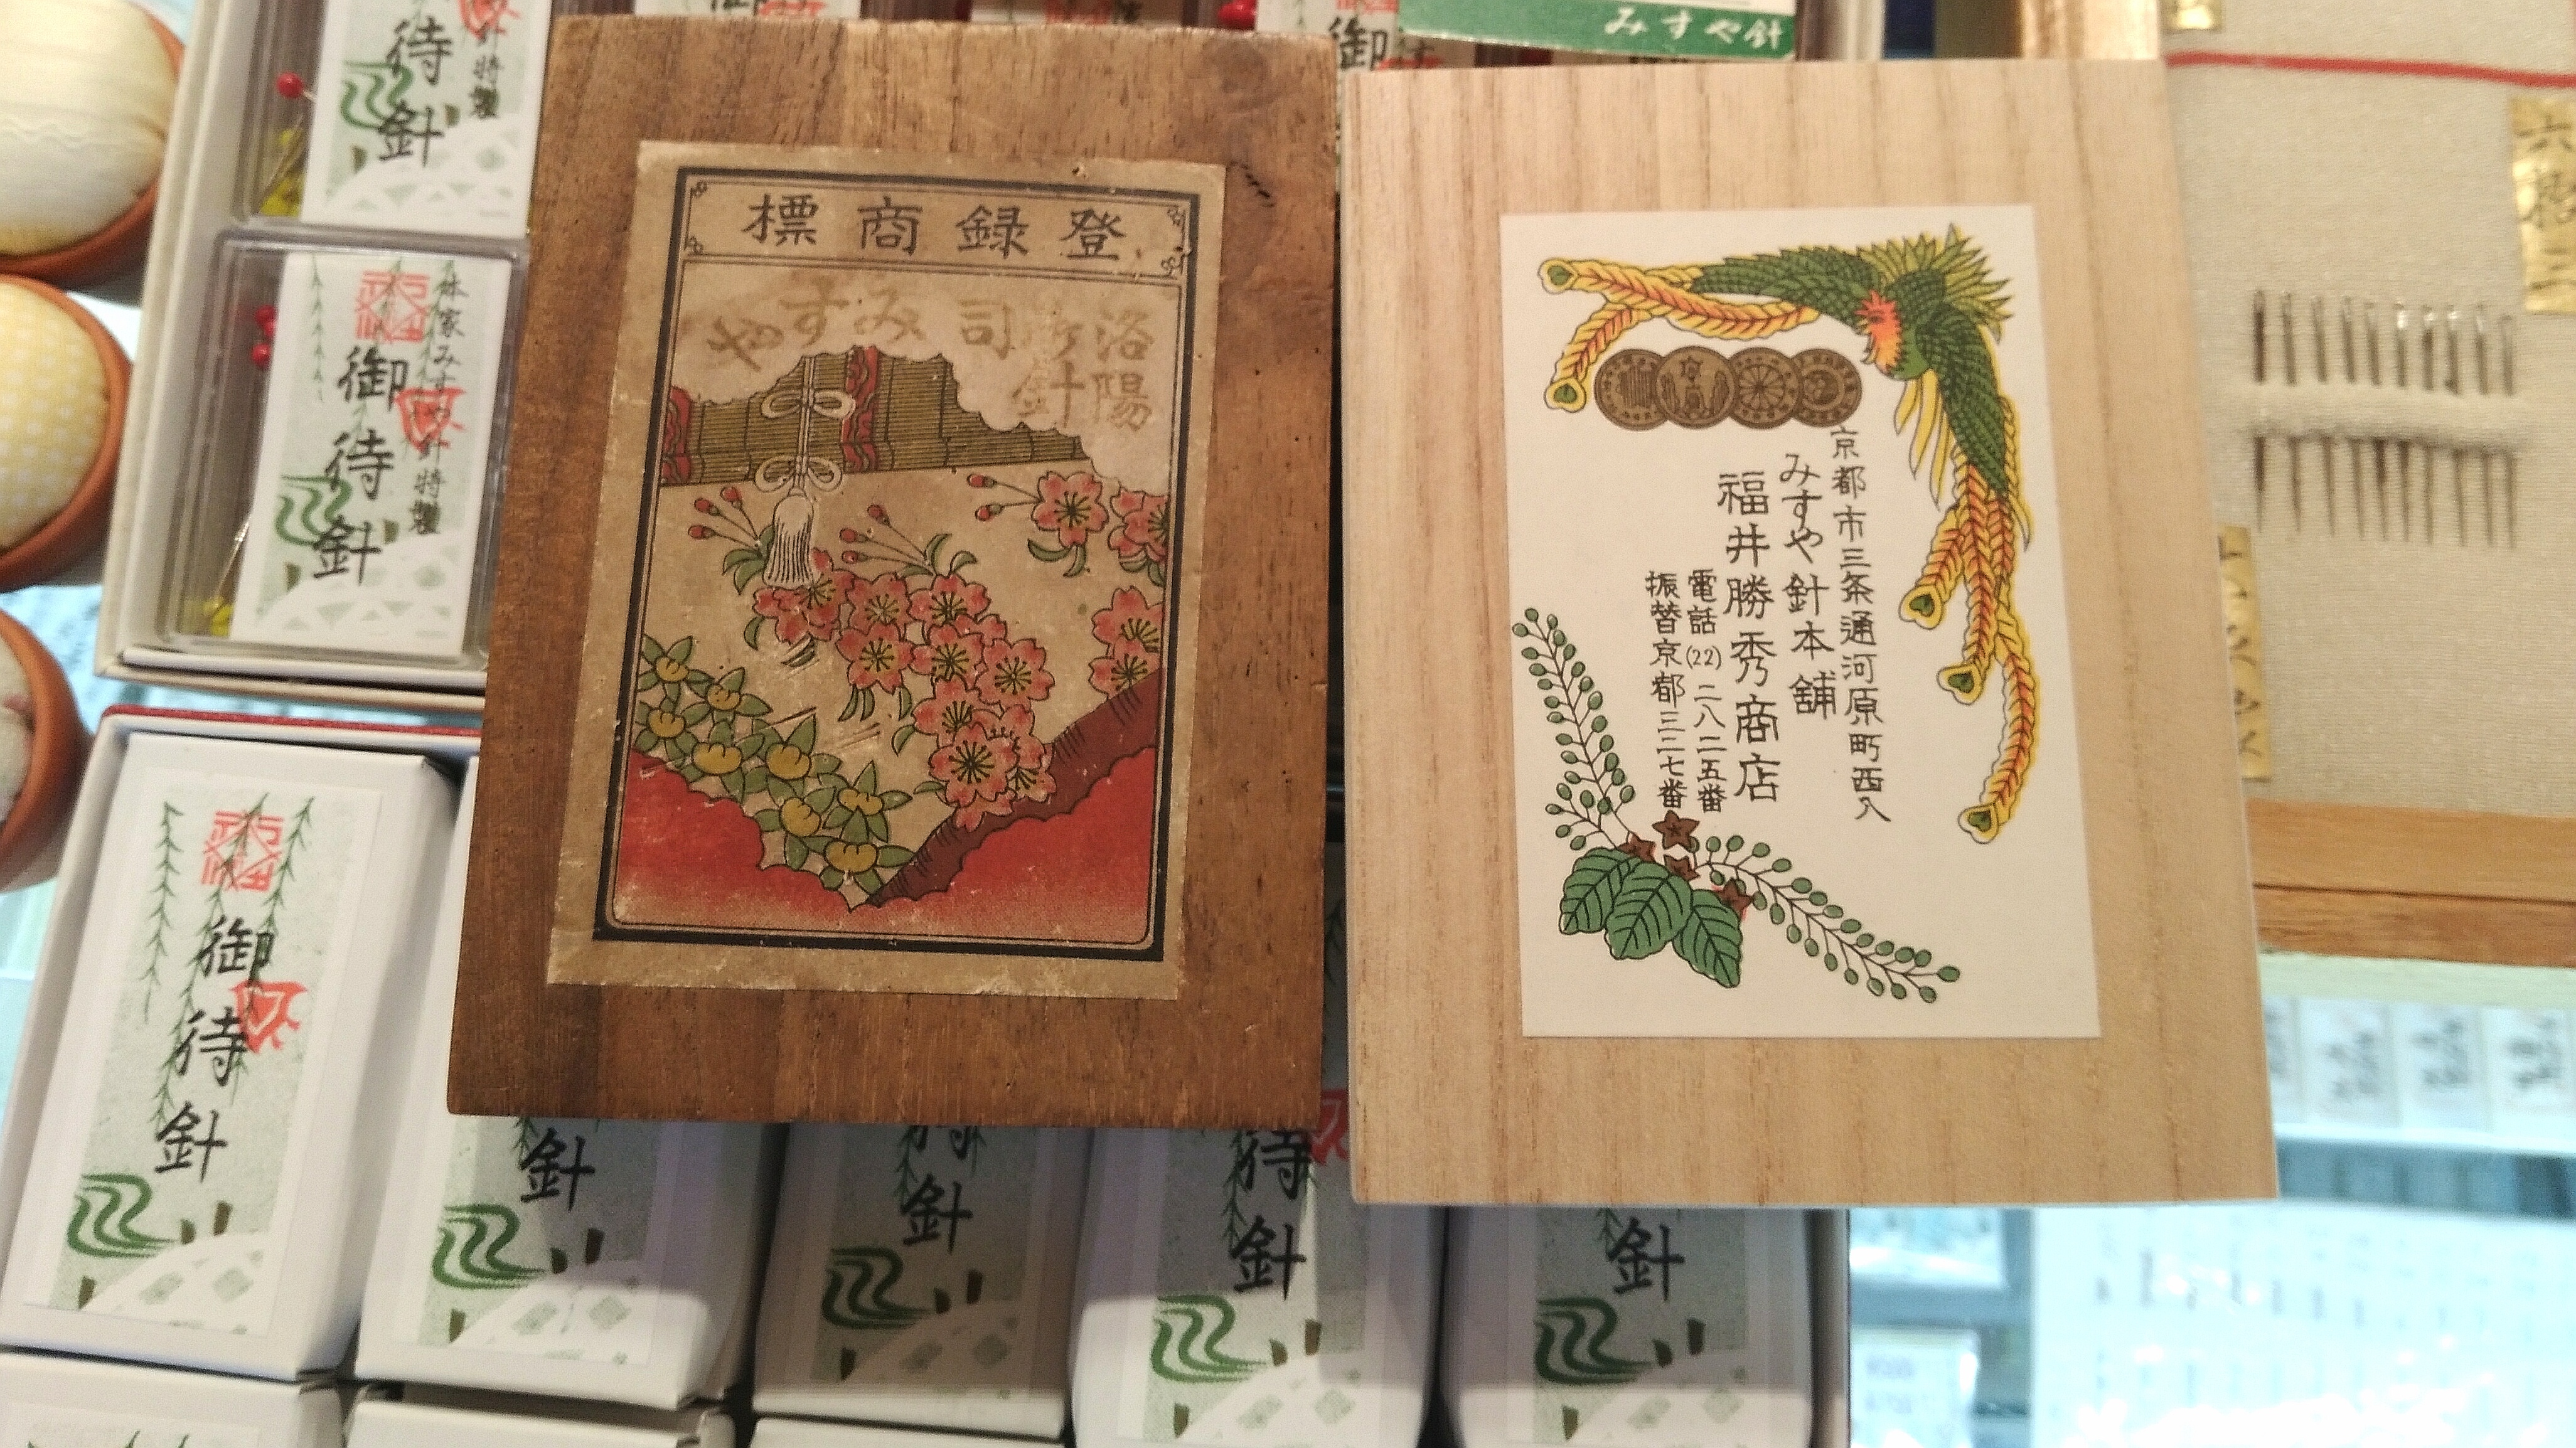 みすや針
御待針
特製
登録商標
洛陽
御針
司
みすや
京都市三条通河原町西入
みすや針本舗
福井勝秀商店
電話(22)二八二五番
振替京都三三七番
本家みすや針特製
御待針
御待針
針
針
待針
針
六拾三